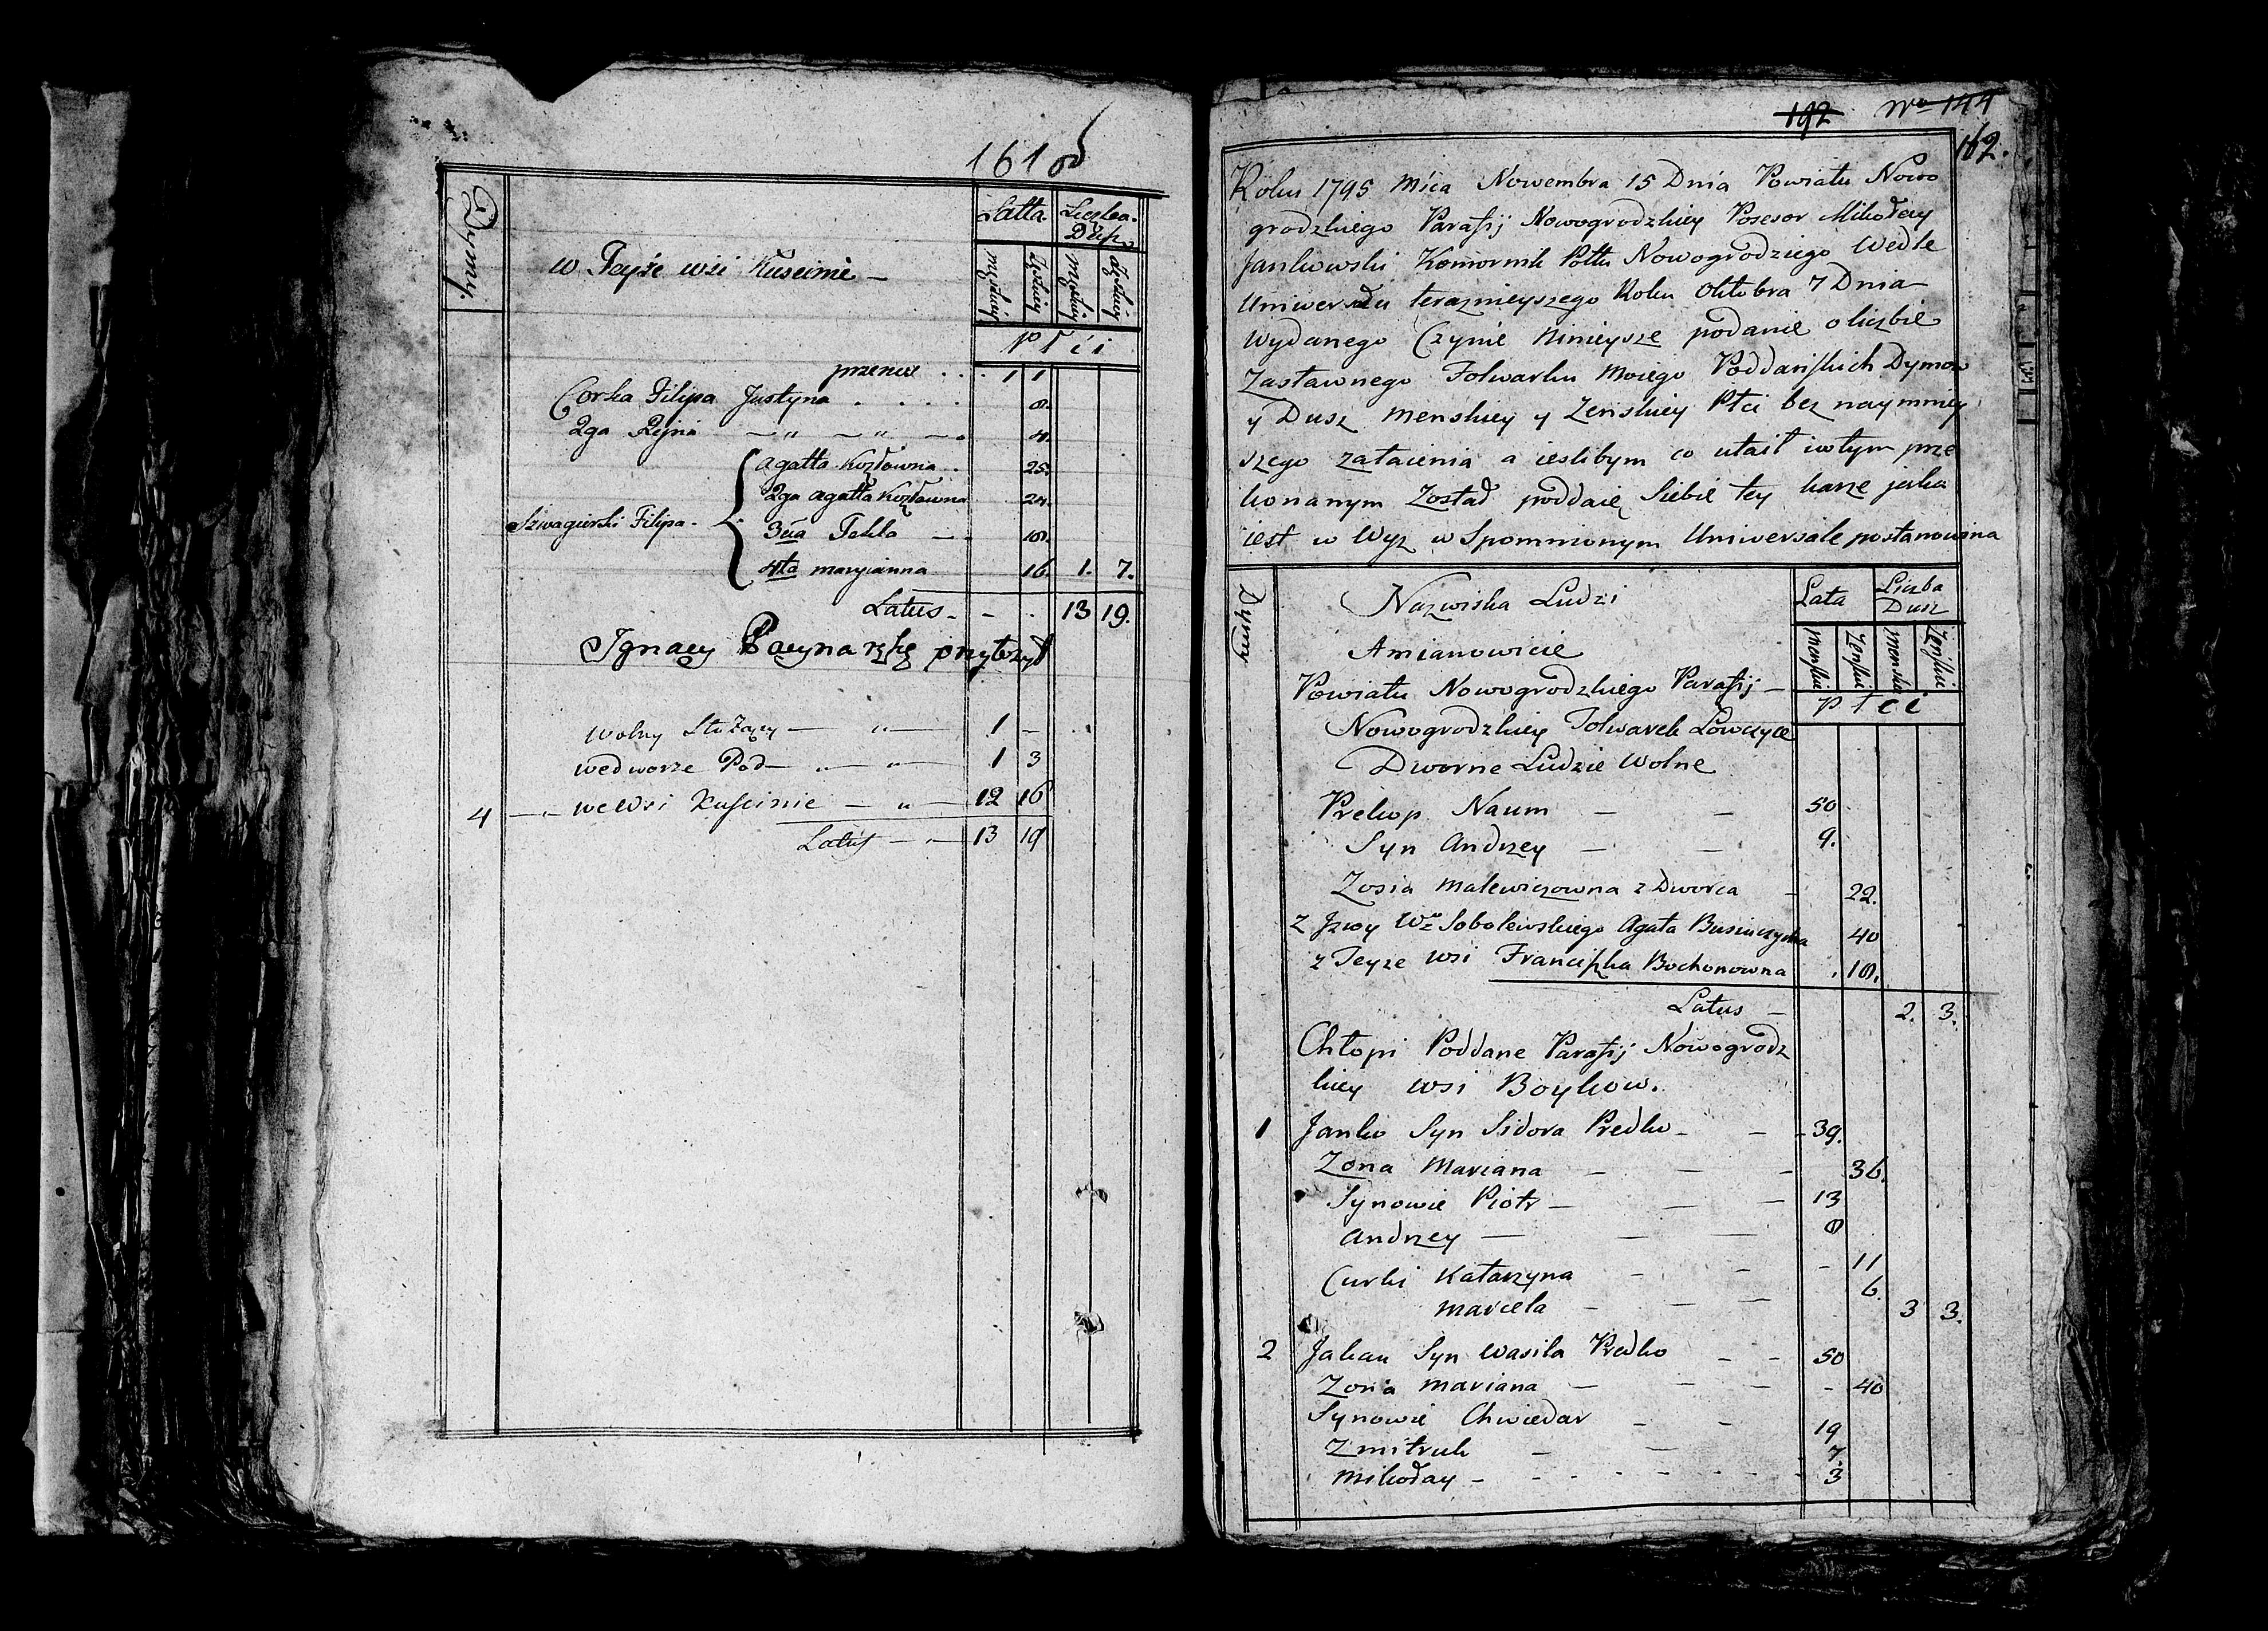 161 od
Dymy.
w Teyże wśi Kuscinie –
Latta. Liczba. Dusz
męskiey żeńskiey męskiey żeńskiey
Płci
przenie . . . 1 1
Corka Filipa Justyna . . . . 8.
2ga Rejna — „ — „ — 4.
Szwagierki Filipa – { Agatta Kozłowna . 25.
2ga Agatta Kozłowna 24.
3cia Tekla — 18.
4ta maryianna 16. 1. 7.
Latus - - . 13 19.
Ignacy przytozył
wolny Służący — „ — 1 –
wedworze Pod — „ — „ — 1 3
4 — „ — we Wsi Kuscinie — „ — 12 16
Latus — „ — 13 19
192 No 144
162.
Roku 1795 Mśca Nowembra 15 Dnia Powiatu Nowo
grodzkiego Parafij Nowogrodzkiey Posesor Mikołay
Jankowski Komornik Pottu Nowogrodziego Wedle
Uniwersału terazmieyszego Roku Oktobra 7 Dnia
Wydanego Czynie Ninieysze podanie o liczbie
Zastawnego Folwarku Moiego Poddańskich Dymow
y Dusz Menskiey y Zenskiey Płci bez naymniey
szego zataienia a ieslibym co utaił iwtym prze
konanym Został poddaię Siebie tey karze jaka
iest w Wyz w Spomnionym Uniwersale postanowiona
Dymy
Nazwiska Ludzi
Amianowicie
Lata Liczba Dusz
Menskie Zenskie Menskie Zenskie
Płci
Powiatu Nowogrodzkiego Parafij –
Nowogrodzkiey Folwarek Łowczyce
Dworne Ludzie Wolne
Prekop Naum — — 50
Syn Andrzey — — 9.
Zosia Malewiczowna z Dworca – 22.
z Jzwy Wo Sobolewskiego Agata 40
z Teyze wsi Franciszka Bochonowna . 18.
Latus – 2. 3.
Chłopi Poddane Parafij Nowogrodz
kiey wsi Boykow.
1 Janko Syn Sidora Predko – – – 39.
Zona Mariana — — – 36.
Synowie Piotr — — — 13
Andrzey — — — 8
Curki Katarzyna – – – 11
Marcela – — — 6. 3 3.
2 Jakau Syn Wasila Predko – – 50
Zona Mariana — – – – 40
Synowie Chwiedar – – 19
Zmitruk – — 7.
Mikołay – - - - - - - 3